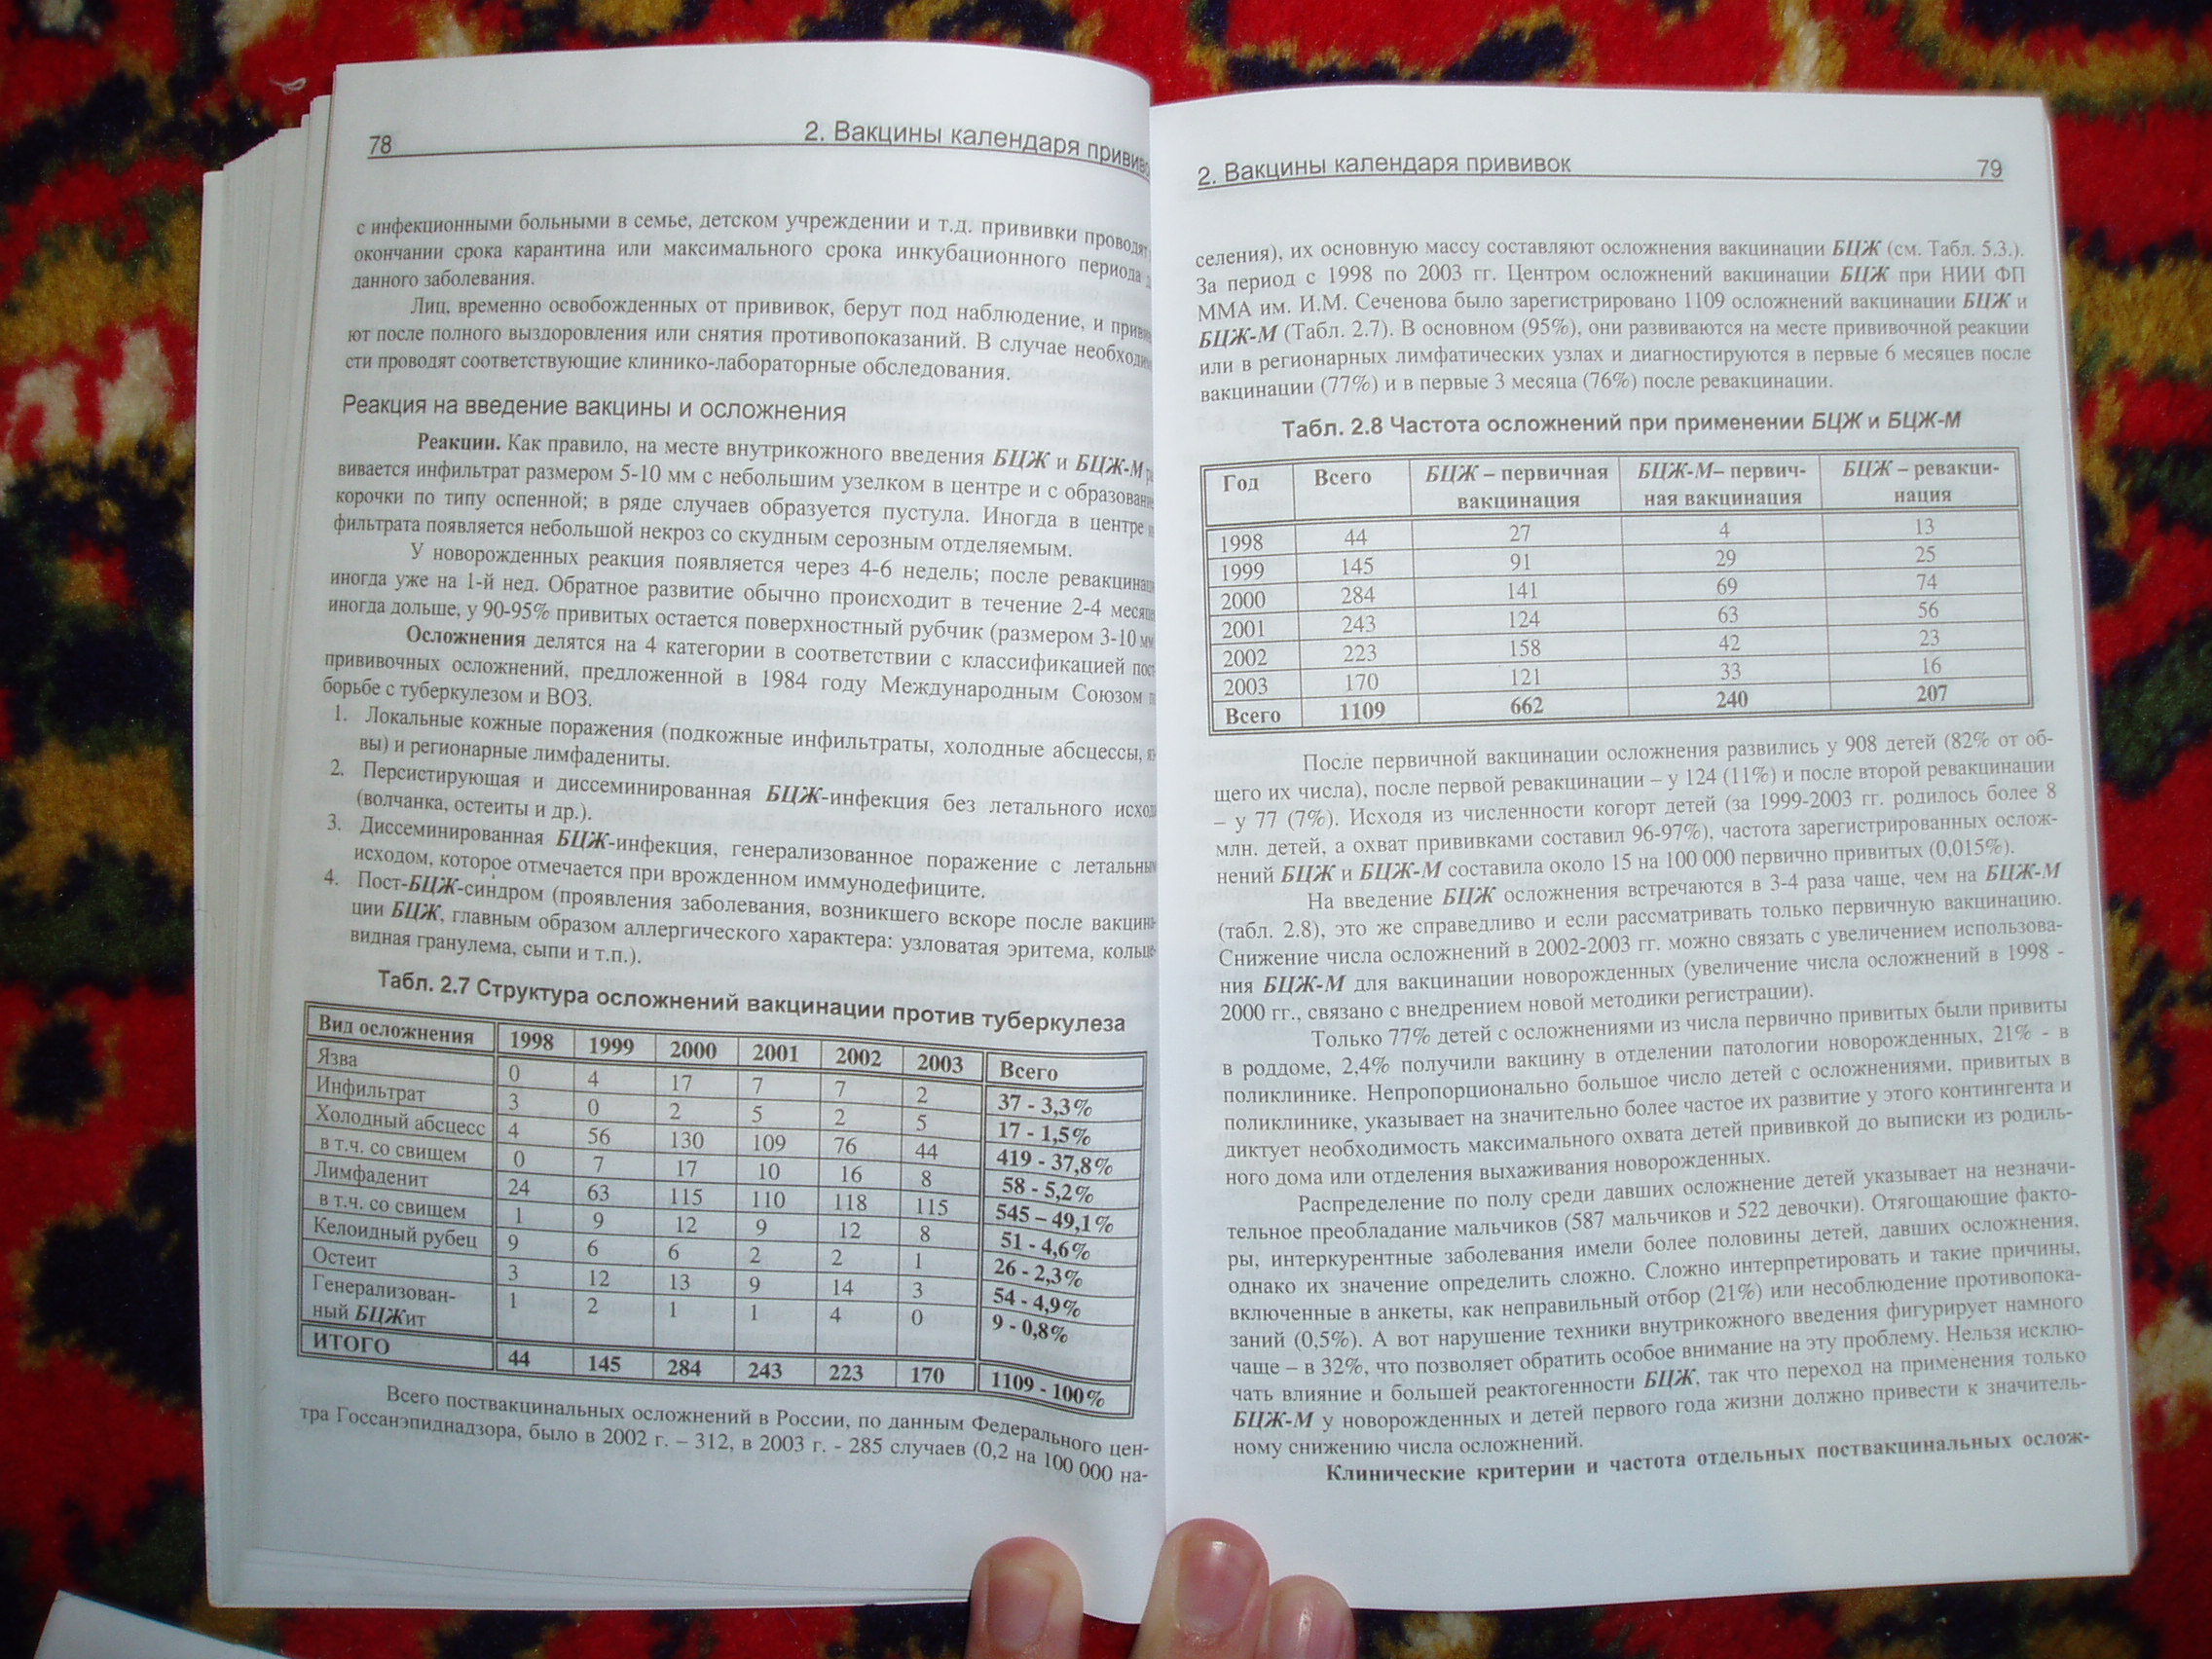 78
2. Вакцины календаря прививо
с инфекционными больными в семье, детском учреждении и т.д. прививки проводят
окончании срока карантина или максимального срока инкубационного периода
данного заболевания.
Лиц, временно освобожденных от прививок, берут под наблюдение, и привив
ют после полного выздоровления или снятия противопоказаний. В случае необходим
сти проводят соответствующие клинико-лабораторные обследования.
Реакция на введение вакцины и осложнения
Реакции. Как правило, на месте внутрикожного введения БЦЖ и БЦЖ-М
вивается инфильтрат размером 5-10 мм с небольшим узелком в центре и с образовани
корочки по типу оспенной; в ряде случаев образуется пустула. Иногда в центре
фильтрата появляется небольшой некроз со скудным серозным отделяемым.
У новорожденных реакция появляется через 4-6 недель; после ревакцинац
иногда уже на 1-й нед. Обратное развитие обычно происходит в течение 2-4 месяце
иногда дольше, у 90-95% привитых остается поверхностный рубчик (размером 3-10 мм
Осложнения делятся на 4 категории в соответствии с классификацией пост
прививочных осложнений, предложенной в 1984 году Международным Союзом п
борьбе с туберкулезом и ВОЗ.
1. Локальные кожные поражения (подкожные инфильтраты, холодные абсцессы, яз
вы) и регионарные лимфадениты.
2. Персистирующая и диссеминированная БЦЖ-инфекция без летального исход
(волчанка, остеиты и др.).
3. Диссеминированная БЦЖ-инфекция, генерализованное поражение с летальны
исходом, которое отмечается при врожденном иммунодефиците.
4. Пост-БЦЖ-синдром (проявления заболевания, возникшего вскоре после вакцина-
ции БЦЖ, главным образом аллергического характера: узловатая эритема, кольце-
видная гранулема, сыпи и т.п.).
Табл. 2.7 Структура осложнений вакцинации против туберкулеза
Вид осложнения 1998 1999 2000 2001 2002 2003 Всего
Язва 0 4 17 7 7 2 37 - 3,3%
Инфильтрат 3 0 2 5 2 5 17 - 1,5%
Холодный абсцесс 4 56 130 109 76 44 419 - 37,8%
в т.ч. со свищем 0 7 17 10 16 8 58 - 5,2%
Лимфаденит 24 63 115 110 118 115 545 – 49,1%
в т.ч. со свищем 1 9 12 9 12 8 51 - 4,6%
Келоидный рубец 9 6 6 2 2 1 26 - 2,3%
Остеит 3 12 13 9 14 3 54 - 4,9%
Генерализован-
ный БЦЖит 1 2 1 1 4 0 9 - 0,8%
ИТОГО 44 145 284 243 223 170 1109 - 100%
Всего поствакцинальных осложнений в России, по данным Федерального цен-
тра Госсанэпиднадзора, было в 2002 г. – 312, в 2003 г. - 285 случаев (0,2 на 100 000 на-
2. Вакцины календаря прививок
79
селения), их основную массу составляют осложнения вакцинации БЦЖ (см. Табл. 5.3.).
За период с 1998 по 2003 гг. Центром осложнений вакцинации БЦЖ при НИИ ФП
ММА им. И.М. Сеченова было зарегистрировано 1109 осложнений вакцинации БЦЖ и
БЦЖ-М (Табл. 2.7). В основном (95%), они развиваются на месте прививочной реакции
или в регионарных лимфатических узлах и диагностируются в первые 6 месяцев после
вакцинации (77%) и в первые 3 месяца (76%) после ревакцинации.
Табл. 2.8 Частота осложнений при применении БЦЖ и БЦЖ-М
Год Всего БЦЖ – первичная вакцинация БЦЖ-М– первич-ная вакцинация БЦЖ – ревакци-нация
1998 44 27 4 13
1999 145 91 29 25
2000 284 141 69 74
2001 243 124 63 56
2002 223 158 42 23
2003 170 121 33 16
Всего 1109 662 240 207
После первичной вакцинации осложнения развились у 908 детей (82% от об-
щего их числа), после первой ревакцинации – у 124 (11%) и после второй ревакцинации
– у 77 (7%). Исходя из численности когорт детей (за 1999-2003 гг. родилось более 8
млн. детей, а охват прививками составил 96-97%), частота зарегистрированных ослож-
нений БЦЖ и БЦЖ-М составила около 15 на 100 000 первично привитых (0,015%).
На введение БЦЖ осложнения встречаются в 3-4 раза чаще, чем на БЦЖ-М
(табл. 2.8), это же справедливо и если рассматривать только первичную вакцинацию.
Снижение числа осложнений в 2002-2003 гг. можно связать с увеличением использова-
ния БЦЖ-М для вакцинации новорожденных (увеличение числа осложнений в 1998 -
2000 гг., связано с внедрением новой методики регистрации).
Только 77% детей с осложнениями из числа первично привитых были привиты
в роддоме, 2,4% получили вакцину в отделении патологии новорожденных, 21% - в
поликлинике. Непропорционально большое число детей с осложнениями, привитых в
поликлинике, указывает на значительно более частое их развитие у этого контингента и
диктует необходимость максимального охвата детей прививкой до выписки из родиль-
ного дома или отделения выхаживания новорожденных.
Распределение по полу среди давших осложнение детей указывает на незначи-
тельное преобладание мальчиков (587 мальчиков и 522 девочки). Отягощающие факто-
ры, интеркурентные заболевания имели более половины детей, давших осложнения,
однако их значение определить сложно. Сложно интерпретировать и такие причины,
включенные в анкеты, как неправильный отбор (21%) или несоблюдение противопока-
заний (0,5%). А вот нарушение техники внутрикожного введения фигурирует намного
чаще – в 32%, что позволяет обратить особое внимание на эту проблему. Нельзя исклю-
чать влияние и большей реактогенности БЦЖ, так что переход на применения только
БЦЖ-М у новорожденных и детей первого года жизни должно привести к значитель-
ному снижению числа осложнений.
Клинические критерии и частота отдельных поствакцинальных ослож-